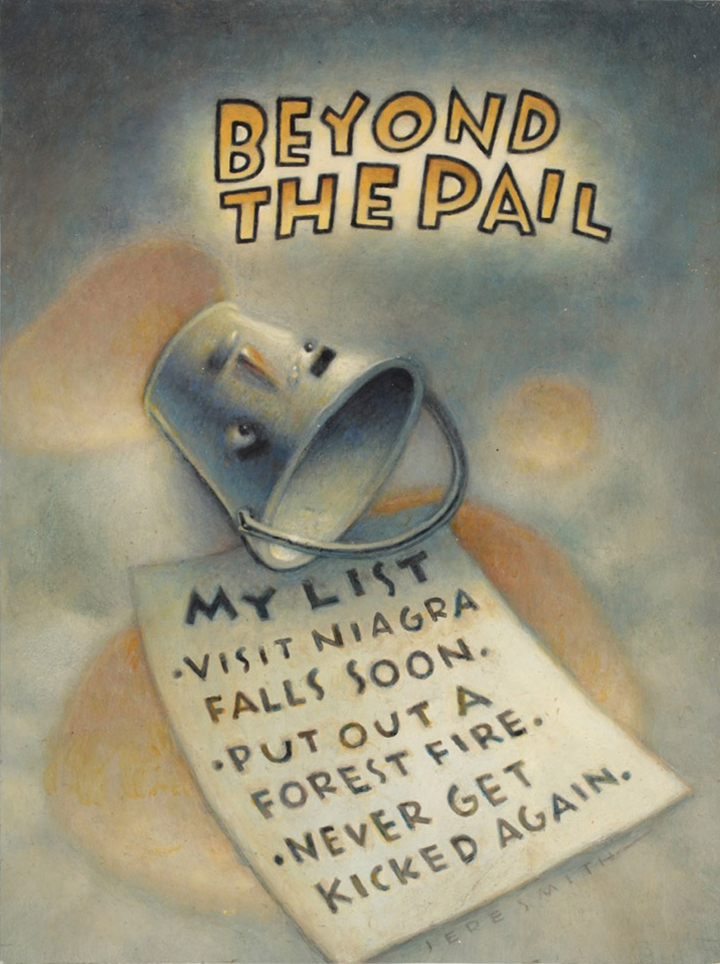 BEYOND
THE PAIL
MY LIST
•VISIT NIAGRA
FALLS SOON.
•PUT OUT A
FOREST FIRE.
•NEVER GET
KICKED AGAIN.
JERE SMITH